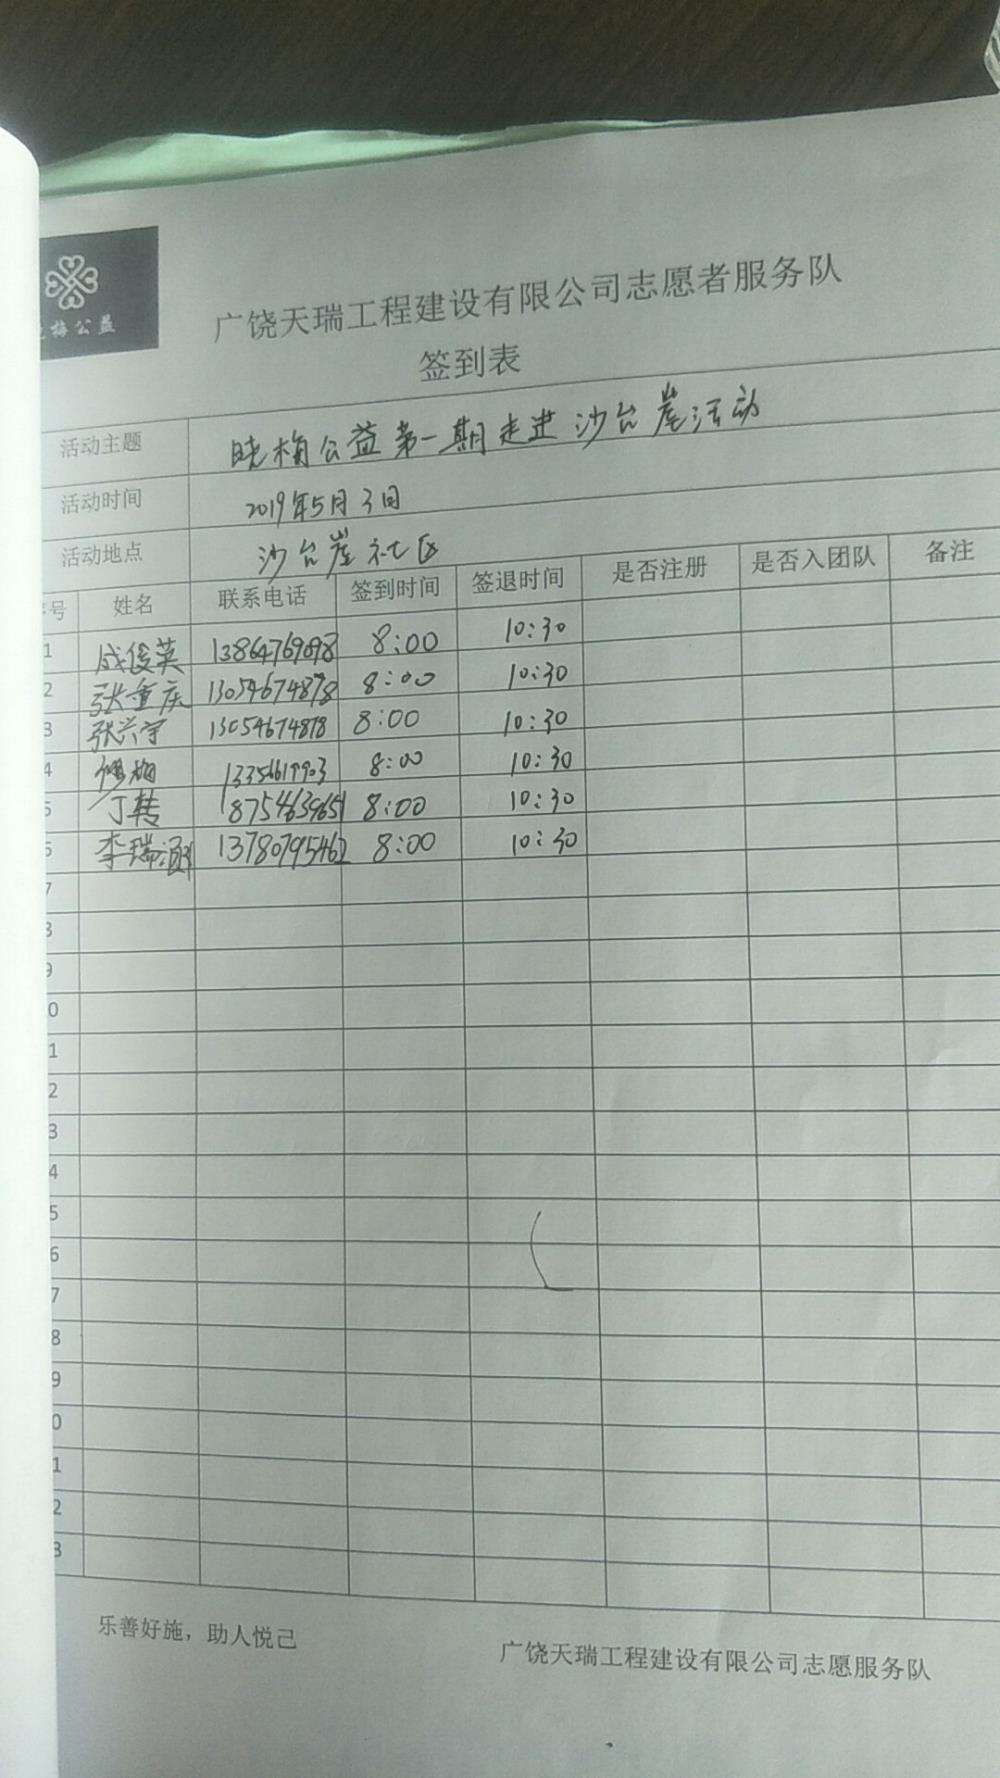 梅公益
广饶天瑞工程建设有限公司志愿者服务队
签到表
活动主题 晓梅公益第一期走进沙台崖活动
活动时间 2019年5月3日
活动地点 沙台崖社区
号 姓名 联系电话 签到时间 签退时间 是否注册 是否入团队 备注
1 成俊英 13864769898 8:00 10:30
2 张重庆 13054674878 8:00 10:30
3 张兴宇 13054674878 8:00 10:30
4 13356619903 8:00 10:30
5 丁转 18754639651 8:00 10:30
6 李瑞涵 13780795462 8:00 10:30
7
8
9
0
1
2
3
4
5
6
7
8
9
0
1
2
3
乐善好施，助人悦己
广饶天瑞工程建设有限公司志愿服务队